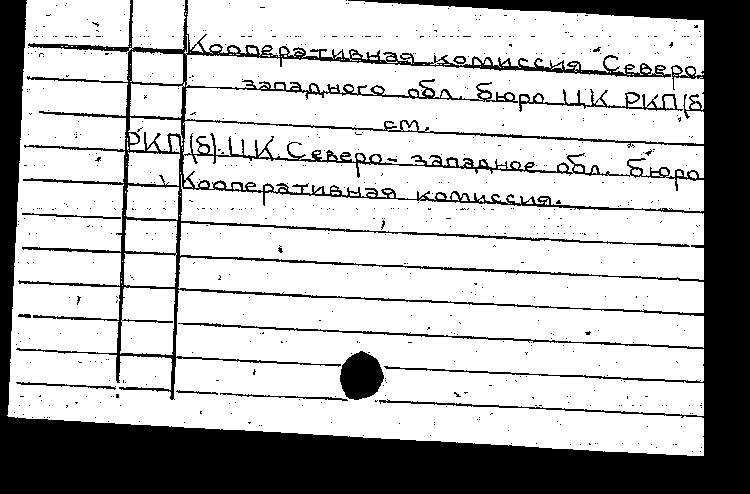 Кооперативная комиссия Северо-
западного обл. бюро ЦК РКП(б
см.
РКП(б). ЦК. Северо-западное обл. бюро
Кооперативная комиссия.